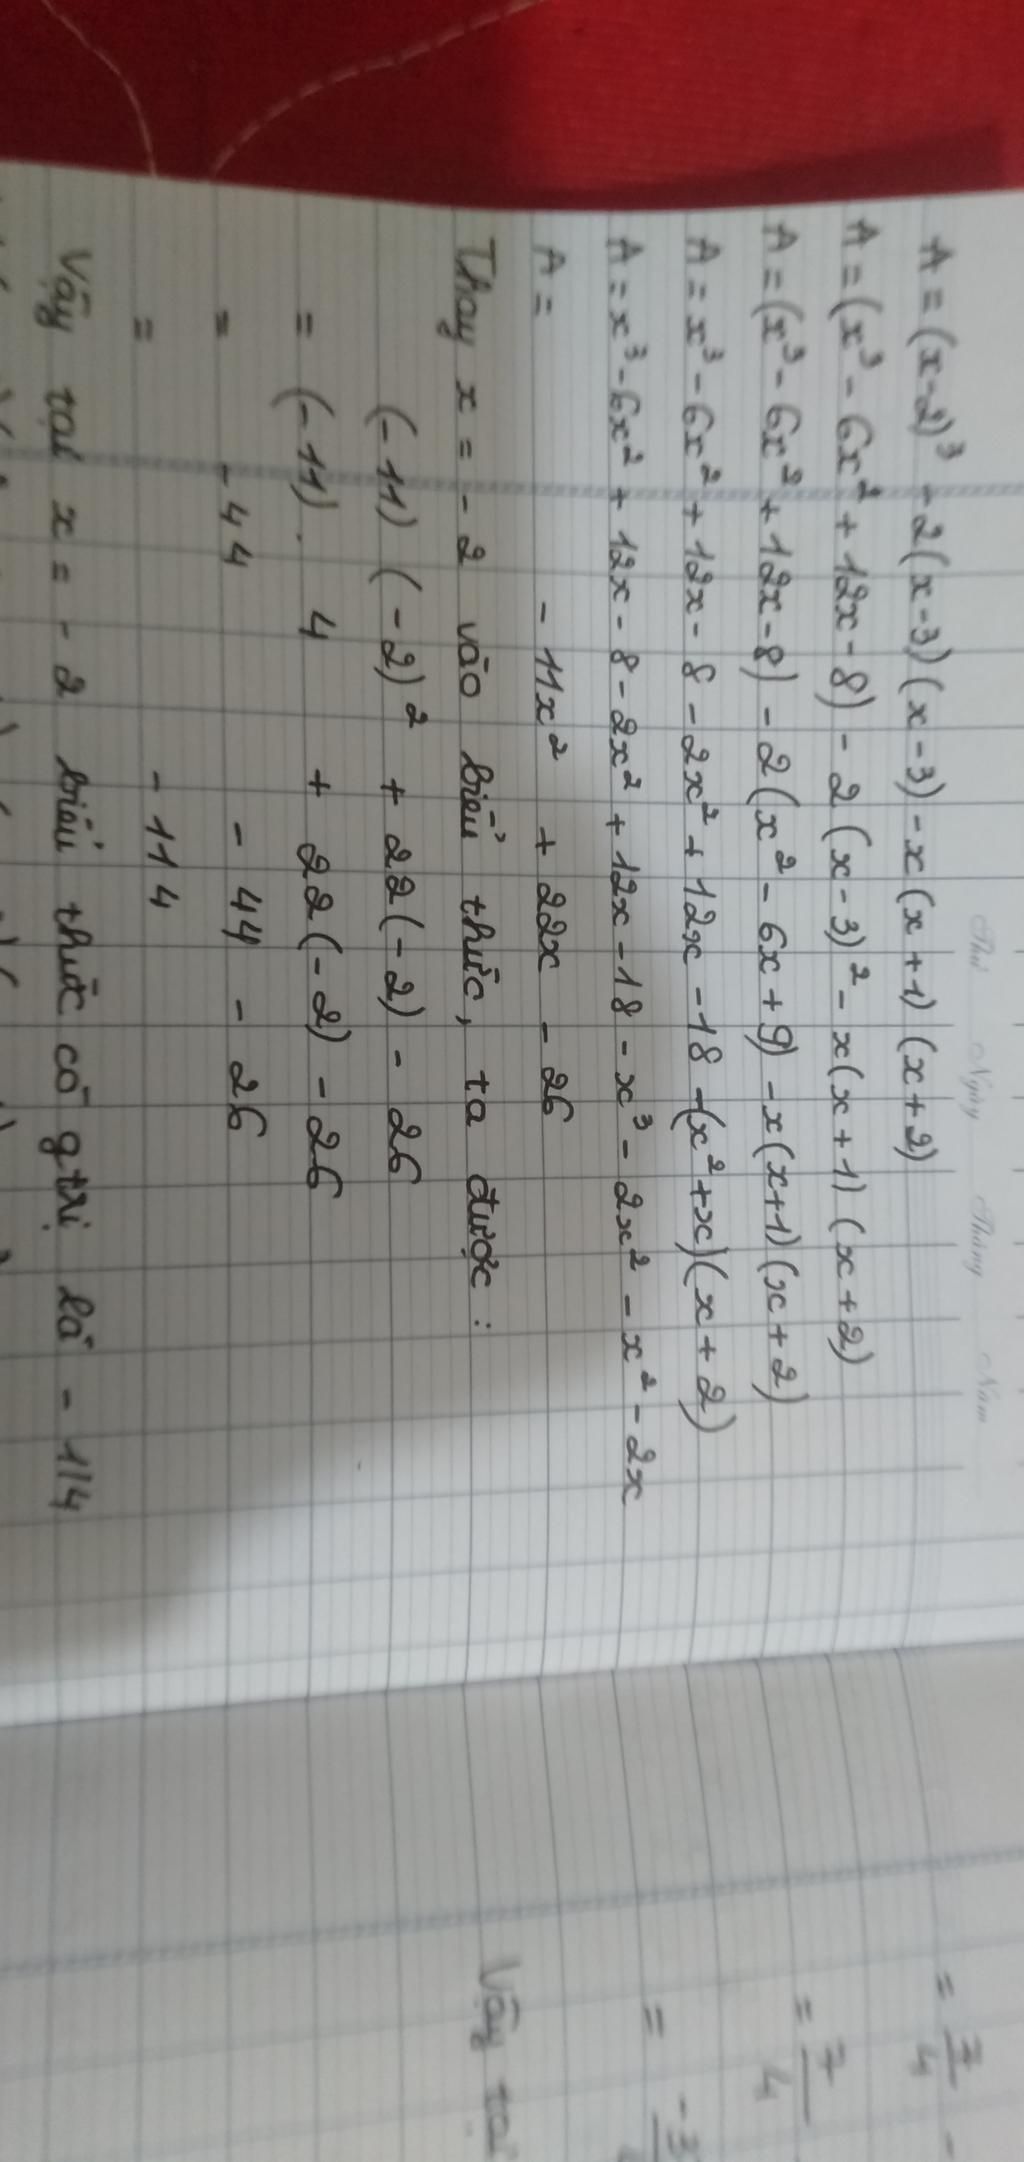 Thứ Ngày Tháng Năm
A = (x-2)³ - 2(x-3)(x-3) - x(x+1)(x+2)
A = (x³ - 6x² + 12x - 8) - 2(x-3)² - x(x+1)(x+2)
A = (x³ - 6x² + 12x - 8) - 2(x² - 6x + 9) - x(x+1)(x+2)
A = x³ - 6x² + 12x - 8 - 2x² + 12x - 18 - (x² + x)(x+2)
A = x³ - 6x² + 12x - 8 - 2x² + 12x - 18 - x³ - 2x² - x² - 2x
A = - 11x² + 22x - 26
Thay x = - 2 vào biểu thức, ta được :
(-11) (-2)² + 22(-2) - 26
= (-11) . 4 + 22(-2) - 26
= - 44 - 44 - 26
= - 114
Vậy tại x = - 2 biểu thức có gtrị là - 114
= 7/4 -
= 7/4
= -3
Vậy tại